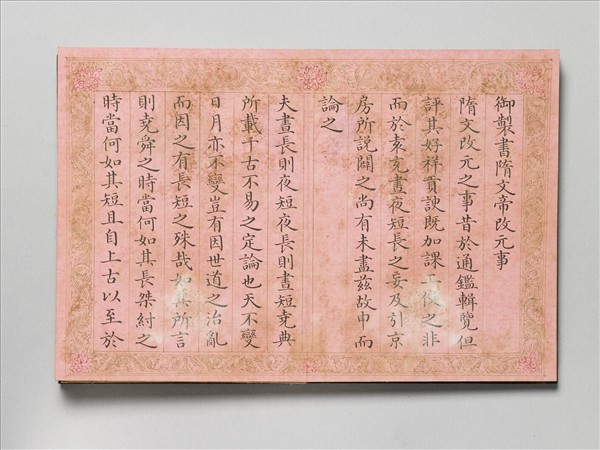 御製書隋文帝改元事
隋文改元之事昔於通鑑輯覽但
評其好祥貢諛既加課工役之非
而於袁充晝夜短長之妄及引京
房所說闢之尚有未盡茲故申而
論之
夫晝長則夜短夜長則晝短堯典
所載千古不易之定論也天不變
日月亦不變豈有因世道之治亂
而因之有長短之殊哉如其所言
則堯舜之時當何如其長桀紂之
時當何如其短且自上古以至於